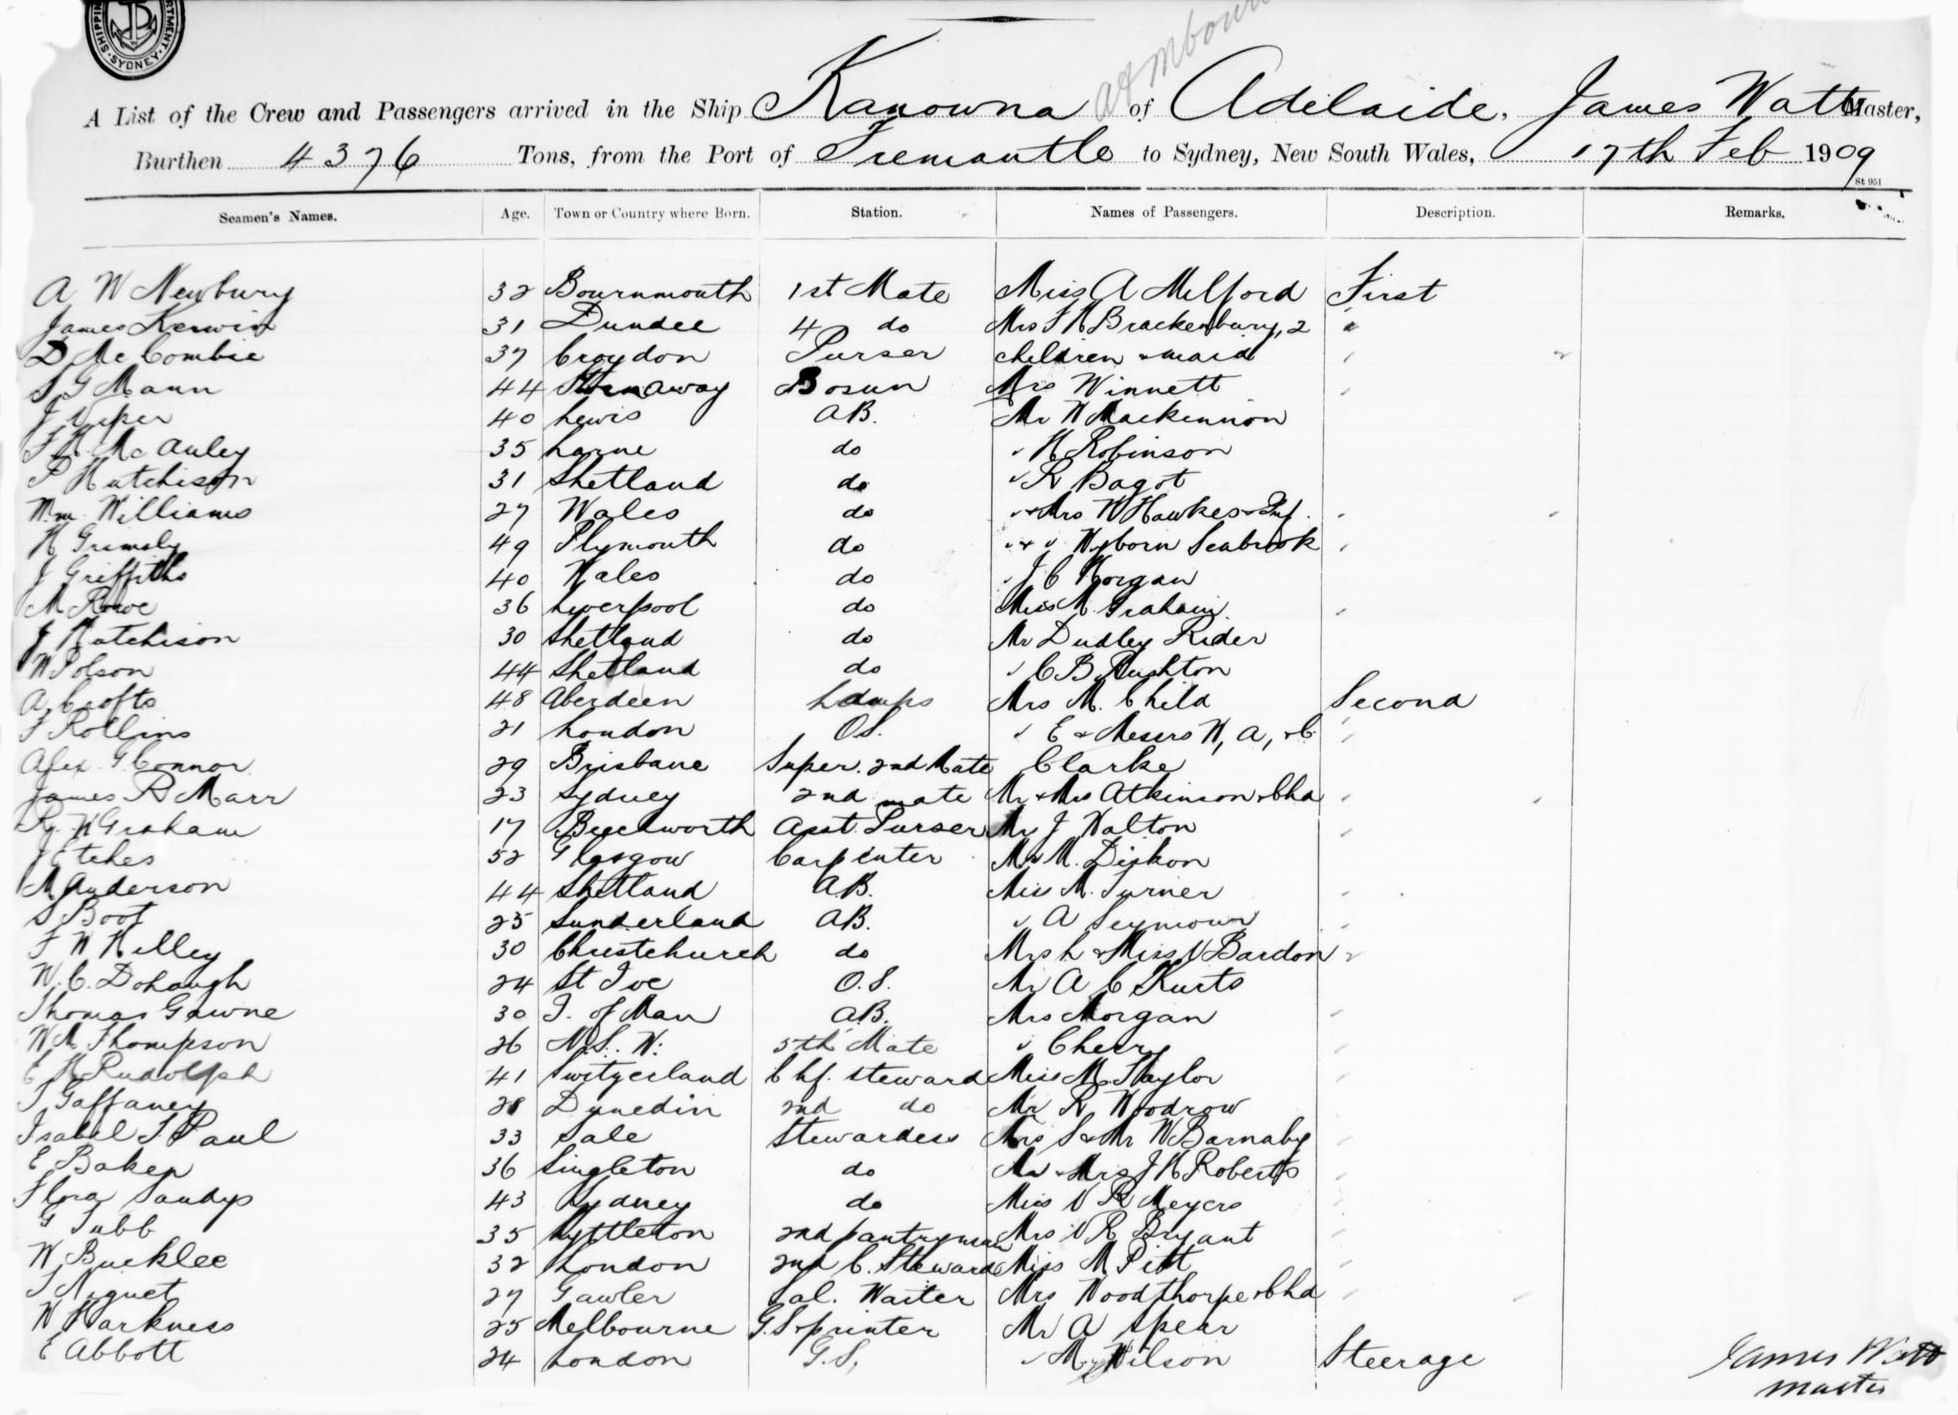 SHIPPING DEPARTMENT. SYDNEY
at Mbourne
A List of the Crew and Passengers arrived in the Ship Kanowna of Adelaide, James Watt Master,
Burthen 4376 Tons, from the Port of Fremantle to Sydney, New South Wales, 17th Feb 1909
St 951
Seamen's Names. Age. Town or Country where Born. Station. Names of Passengers. Description. Remarks.
A W Newbury 32 Bournmouth 1st Mate Miss A Milford First
James Kerwin 31 Dundee 4 do Mrs F H Brackenbury, 2 "
D McCombie 37 Croydon Purser children & maid
S G Mann 44 Bosun Mrs Winnett
J Piper 40 Lewis AB. Mr W Mackinnon
F H McAuley 35 Larne do " H Robinson
P Hutchison 31 Shetland do " R Bagot
Wm Williams 27 Wales do " & Mrs W Hawkes & Inf.
H Grimsby 49 Plymouth do " & " Wyborn Seabrook
J Griffiths 40 Wales do " J C Morgan
M Rowe 36 Liverpool do Miss M. Graham
J Hutchison 30 Shetland do Mr Dudley Rider
W Polson 44 Shetland do " C B Rushton
A Crofts 48 Aberdeen Lamps Mrs M. Child Second
F Rollins 21 London O.S. " E & Messrs W, A, & C
Alex G Connor 29 Brisbane Super. 2nd Mate Clarke
James R Marr 23 Sydney 2nd mate Mr & Mrs Atkinson & Chd
W Graham 17 Beechworth Asst Purser Mr J Walton
J Etches 52 Glasgow Carpenter M. Dickon
M Anderson 44 Shetland A.B. Miss M. Turner
S Boot 25 Sunderland AB. " A Seymour
F W Kelley 30 Christchurch do Mrs L & Miss V Bardon
W. C. Dohaugh 24 St Ive O.S. Mr A C Kurts
Thomas Gawne 30 I. of Man AB. Mrs Morgan
W M Thompson 26 N.S.W. 5th Mate " Cherry
E H Rudolph 41 Switzerland Chf. steward Miss M. Taylor
T Gaffaney 28 Dunedin 2nd do Mr R Woodrow
Isabel T Paul 33 Sale Stewardess Mrs S & Mr W Barnaby
E Baker 36 Singleton do Mr & Mrs J H Roberts
Flora Sandys 43 Sydney do Miss V R Meyers
G Tubb 35 Lyttleton 2nd pantryman Mrs V R Bryant
W Bucklee 32 London 2nd C. Steward Miss M Pitt
T Niquet 27 Gawler Sal. Waiter Mrs Woodthorpe & Chd
W Harkness 25 Melbourne G.S & printer Mr A Spear
E Abbott 24 London G.S, " M. Wilson Steerage
James Watt
master